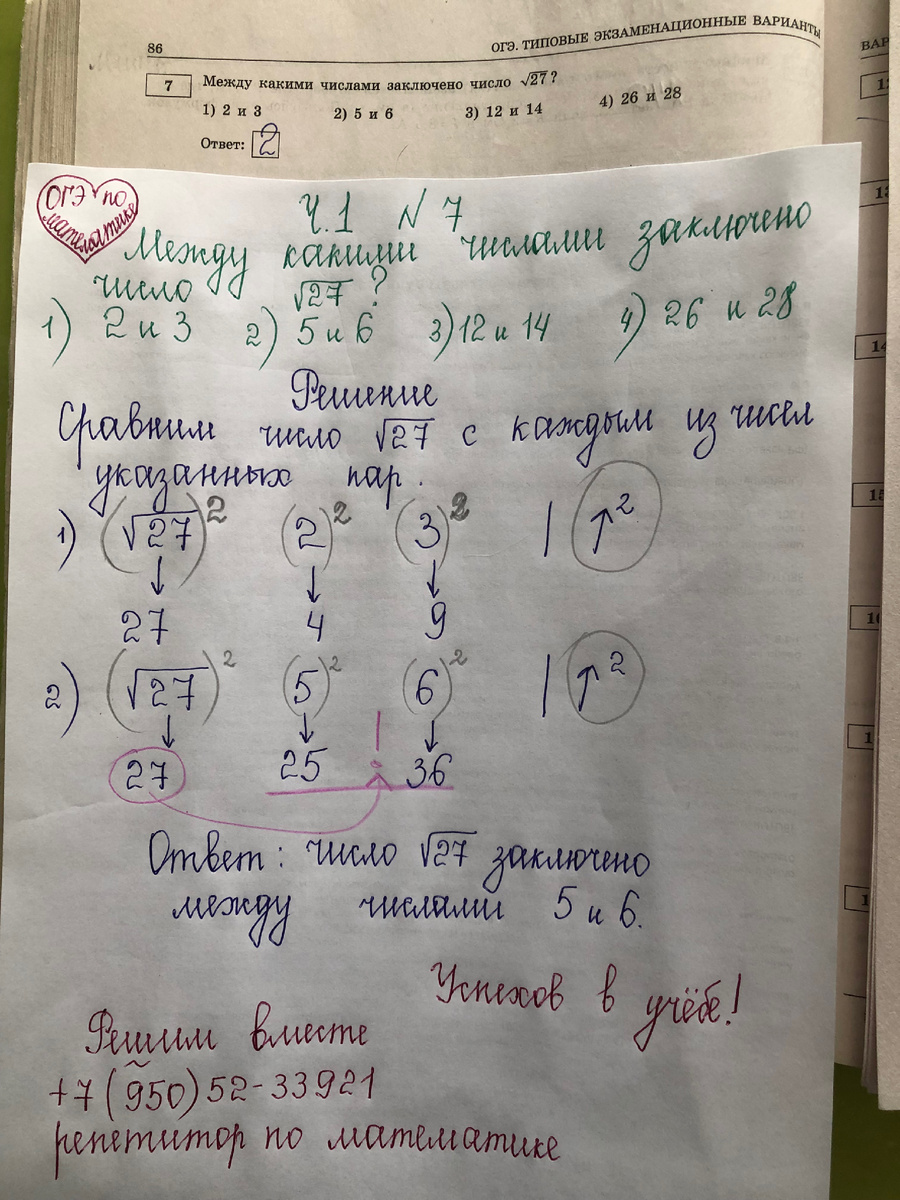 86
ОГЭ. ТИПОВЫЕ ЭКЗАМЕНАЦИОННЫЕ ВАРИАНТЫ
7 Между какими числами заключено число √27?
1) 2 и 3 2) 5 и 6 3) 12 и 14 4) 26 и 28
Ответ: 2
ВАР
ОГЭ по
математике
Ч.1 N 7
Между какими числами заключено
число √27 ?
1) 2 и 3 2) 5 и 6 3) 12 и 14 4) 26 и 28
Решение
Сравним число √27 с каждым из чисел
указанных пар.
1) (√27)² (2)² (3)² | ↑²
↓ ↓ ↓
27 4 9
2) (√27)² (5)² (6)² | ↑²
↓ ↓ ↓
27 25 36
Ответ: число √27 заключено
между числами 5 и 6.
Успехов в учёбе!
Решим вместе
+7(950)52-33921
репетитор по математике